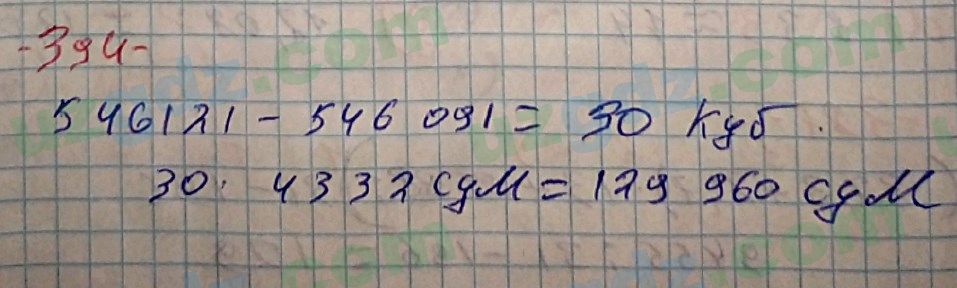 -394-
546121 - 546 091 = 30 куб.
30 · 4332 сум = 129 960 сум